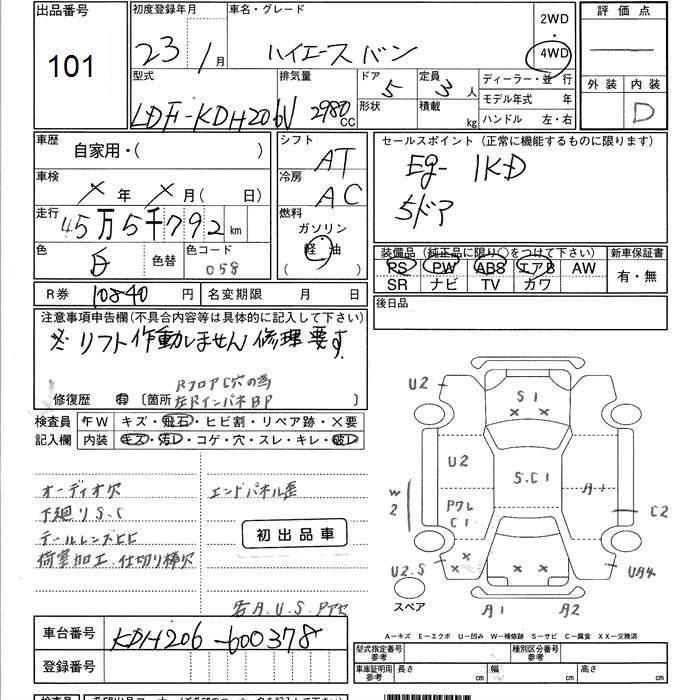 出品番号
101
初度登録年月
23 / 1 月
車名・グレード
ハイエース バン
2WD
4WD
評価点
外装 内装
D
型式
LDF-KDH206V
排気量
2980 CC
ドア
5
形状
定員
3 人
積載 kg
ディーラー・並行
モデル年式 年
ハンドル 左・右
車歴
自家用・( )
車検
× 年 × 月( 日)
走行
45万5千792 km
色
白 色替
色コード
058
シフト
AT
冷房
AC
燃料
ガソリン
軽油
( )
セールスポイント (正常に機能するものに限ります)
Eg- 1KD
5ドア
装備品 (純正品に限り○をつけて下さい)
PS PW ABS エアB AW
SR ナビ TV カワ
新車保証書
有・無
R券 10840 円
名変期限 月 日
後日品
注意事項申告欄(不具合内容等は具体的に記入して下さい)
※ リフト作動しません 修理要す.
修復歴 有 [箇所 RフロアC穴の為
左RインパネBP
検査員 FW キズ・飛石・ヒビ割・リペア跡・×要
記入欄 内装 キズ・汚レ・コゲ・穴・スレ・キレ・破レ
オーディオ欠
下廻りS.C
テールレンズヒビ
荷室加工.仕切り棒欠
エンドパネル歪
初出品車
右A.U.S.Pアセ
U2
S1
× ×
U2
S.C1
A1
W2
PワレC1
C2
× ×
U2.S
× ×
UA4
スペア
A1 A2
A-キズ E-エクボ U-凹み W-補修跡 S-サビ C-腐食 XX-交換済
車台番号
KDH206-600378
登録番号
型式指定番号
参考
種別区分番号
参考
車両寸法
参考
長さ cm
幅 cm
高さ cm